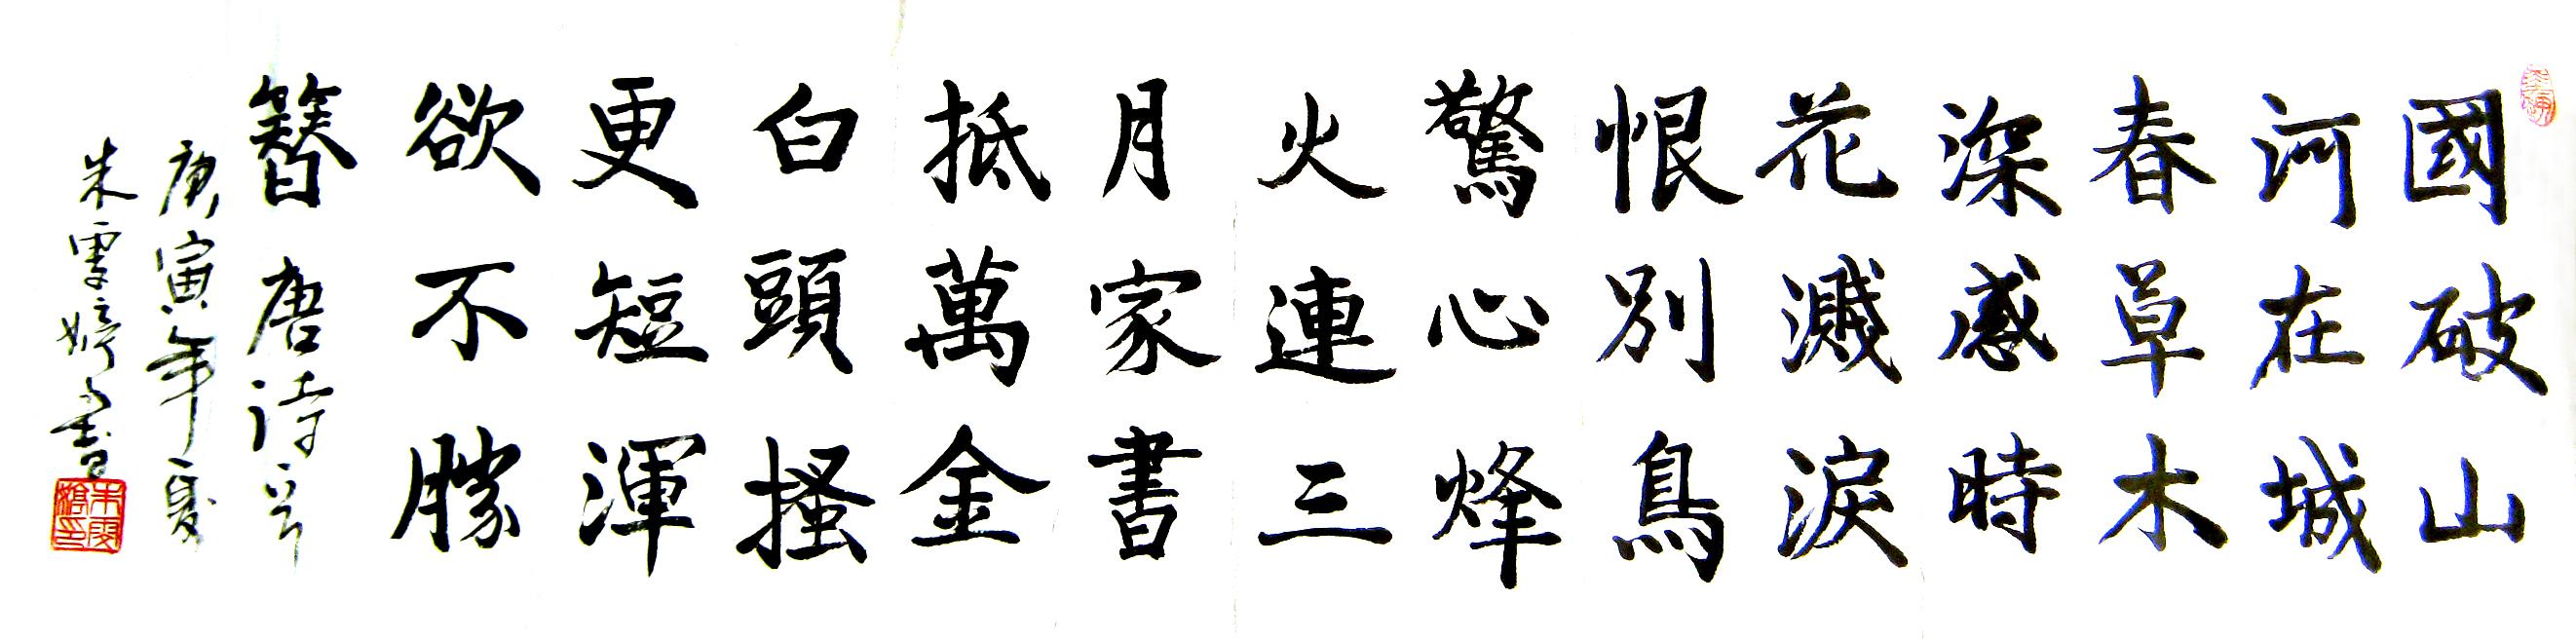 國破山
河在城
春草木
深感時
花濺淚
恨別鳥
驚心烽
火連三
月家書
抵萬金
白頭搔
更短渾
欲不勝
簪 唐詩
庚寅年夏
朱雯婷書
朱雯婷印